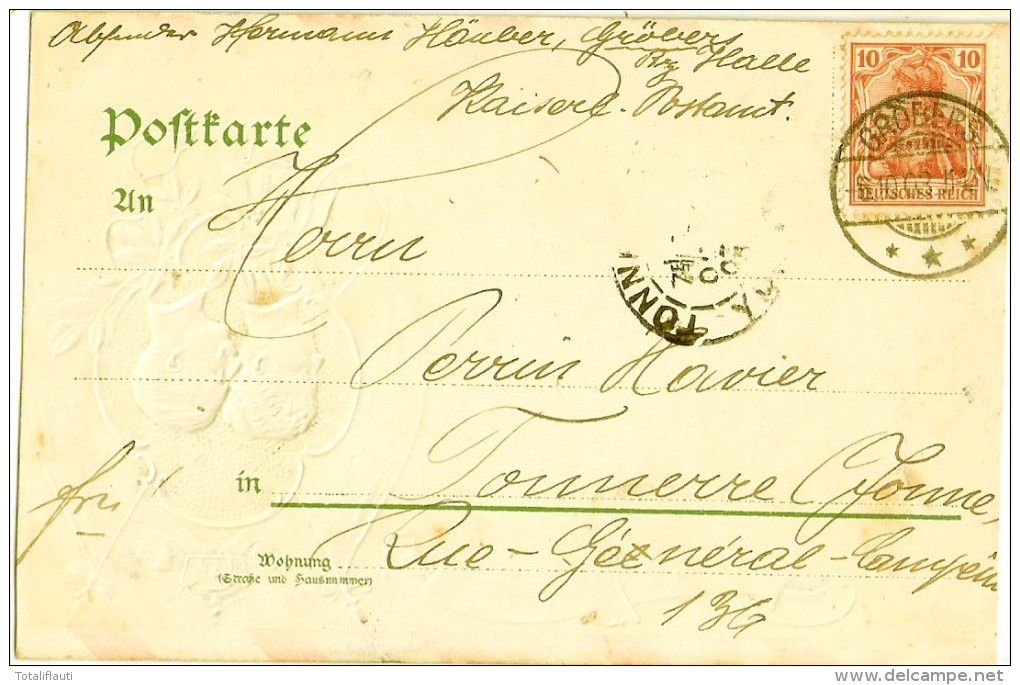 Absender Hermann Häuber, Gröbers
Bz Halle
Kaiserl. Postamt.
10 10
DEUTSCHES REICH
GRÖBERS
Postkarte
An
Herrn
TONN
Perrin Xavier
in Tonnerre (Yonne)
frei
Rue - Général - Campenon
Wohnung
(Straße und Hausnummer)
136
Totaliflauti
delcampe.net